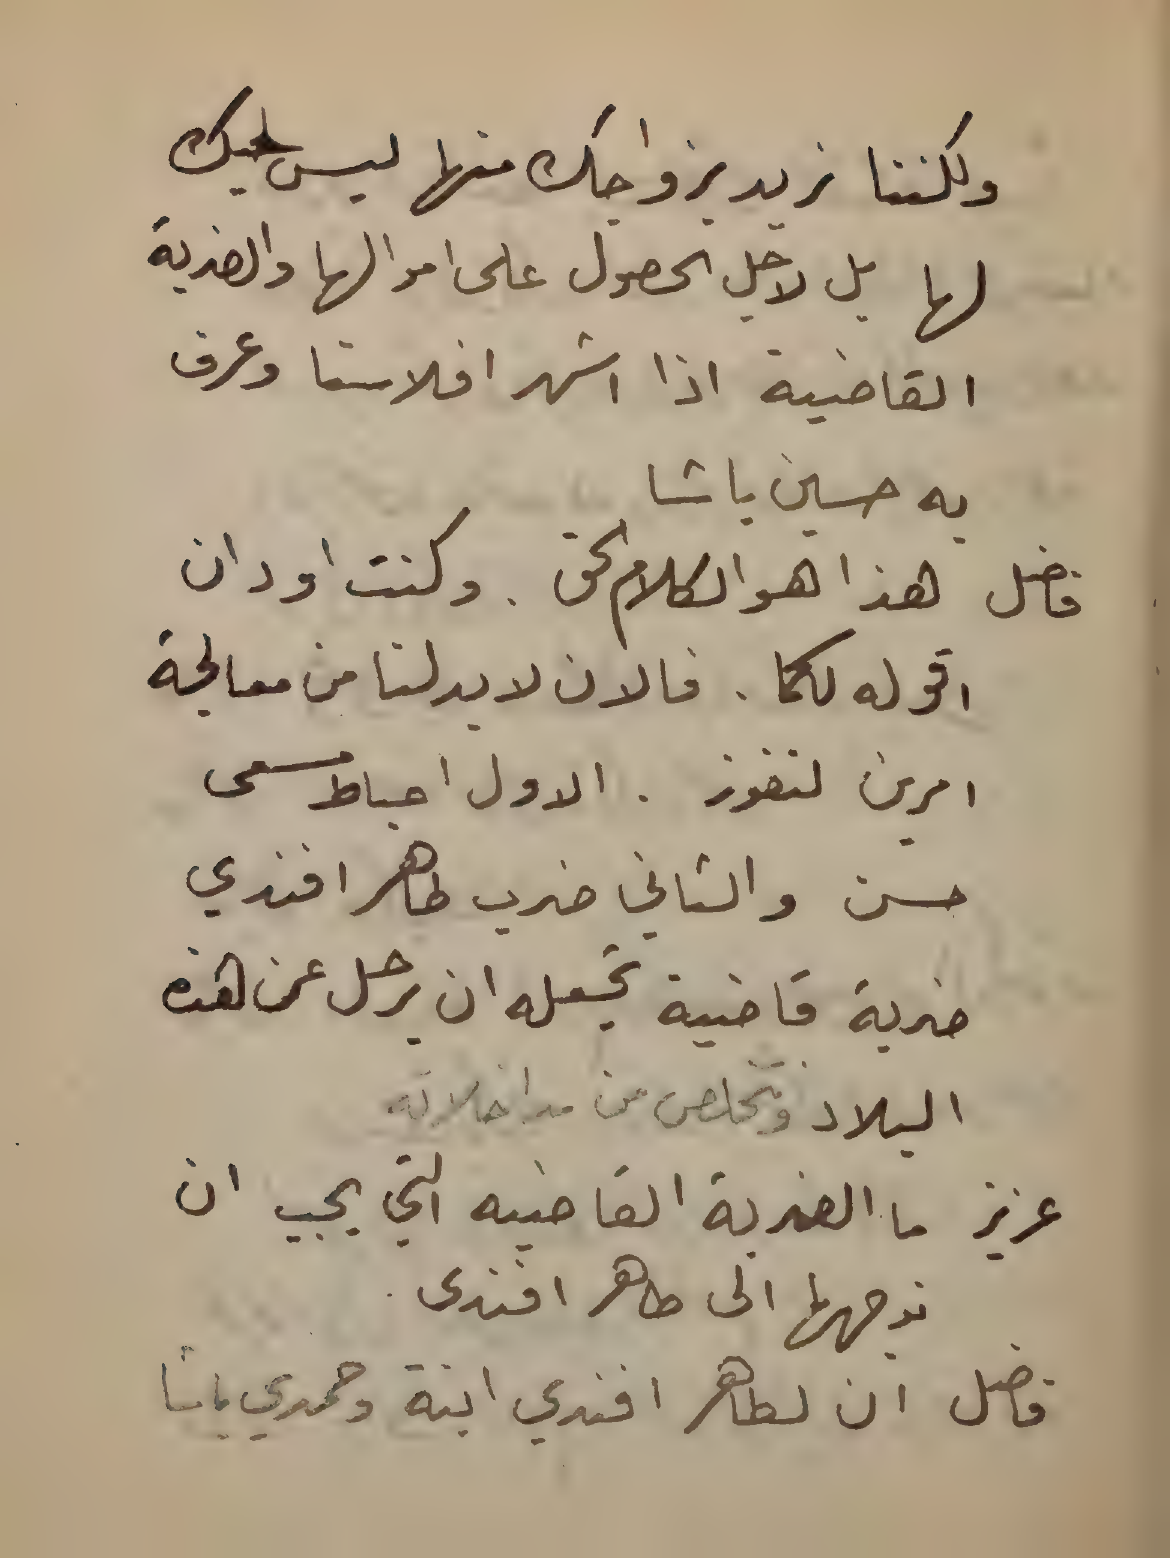 ولكننا نريد بزواجك منها ليس لحبك
لها بل لاجل الحصول على اموالها والضربة
القاضية اذا اشهر افلاسنا وعرف
به حسين باشا
فاضل هذا هو الكلام الحق . وكنت اود ان
اقوله لكما . فالان لا بد لنا من معالجة
امرين لنفوز . الاول احباط مسعى
حسن والثاني ضرب طاهر افندي
ضربة قاضية تجعله ان يرحل عن هذه
البلاد ونتخلص من مداخلاته
عزيز ما الضربة القاضيه التي يجب ان
نوجهها الى طاهر افندى .
فاضل ان لطاهر افندي ابنة وحمدي باشا